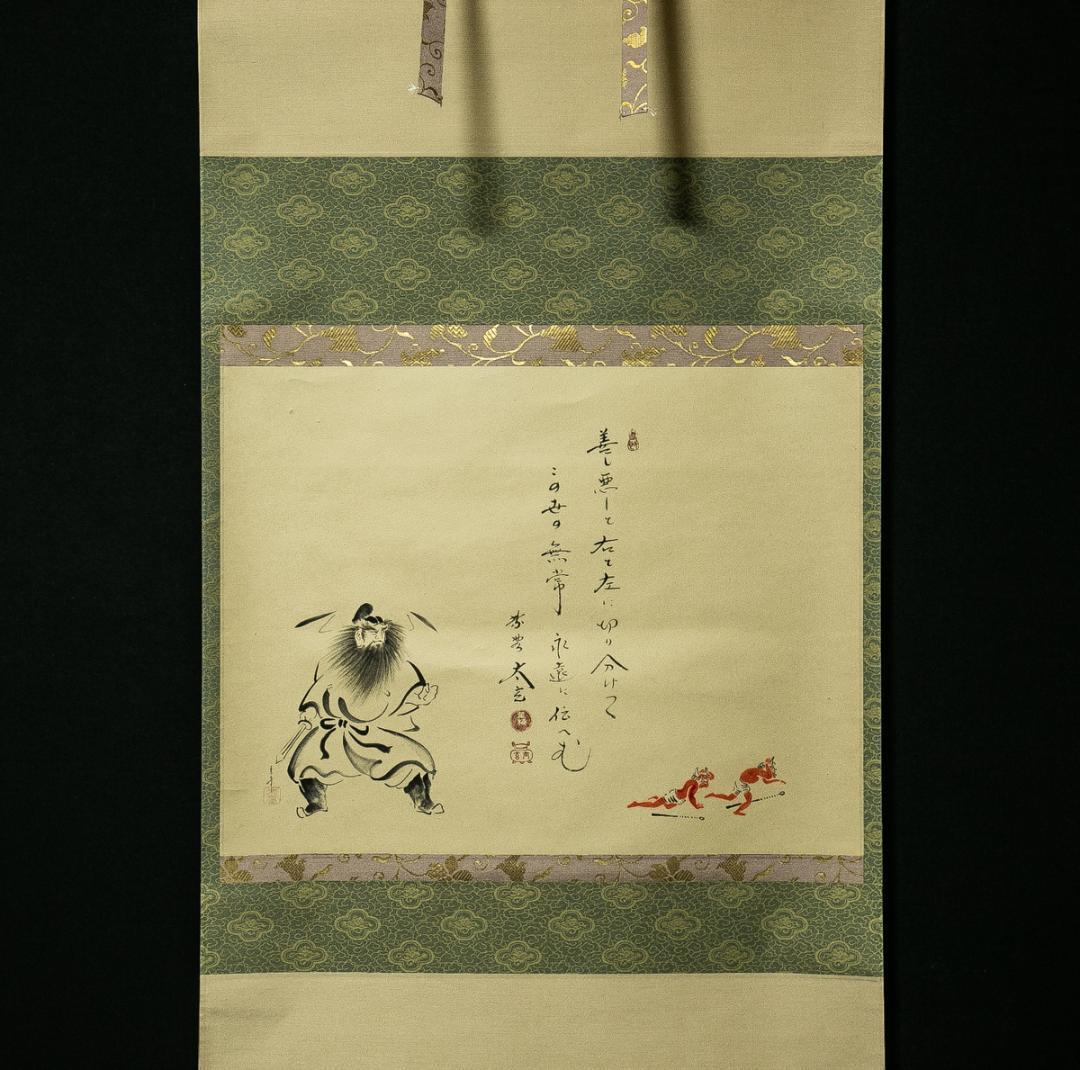 善し悪しと右と左に切り分けて
この世の無常永遠に伝へむ
太玄